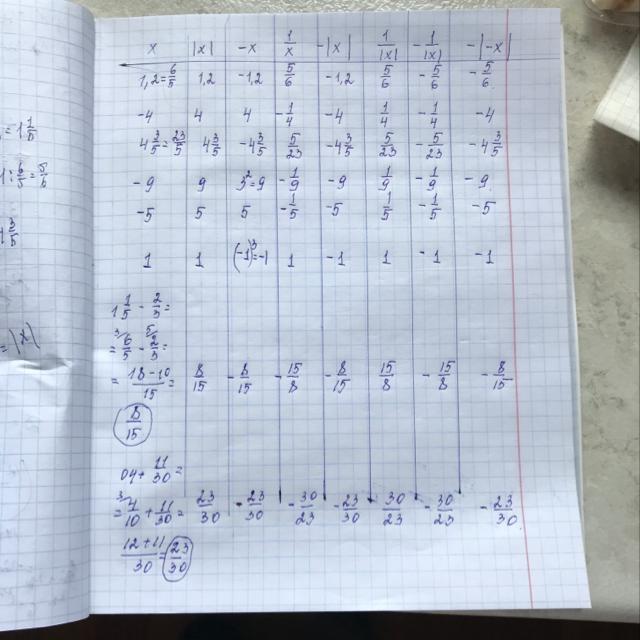 x |x| -x 1/x -|x| 1/|x| -1/|x| -|-x|
1,2=6/5 1,2 -1,2 5/6 -1,2 5/6 -5/6 -5/6
-4 4 4 -1/4 -4 1/4 -1/4 -4
4 3/5=23/5 4 3/5 -4 3/5 5/23 -4 3/5 5/23 -5/23 -4 3/5
-9 9 3²=9 -1/9 -9 1/9 -1/9 -9
-5 5 5 -1/5 -5 1/5 -1/5 -5
1 1 (-1)³=-1 1 -1 1 -1 -1
1 1/5 - 2/3=
=6/5 - 2/3=
=18-10/15= 8/15 -8/15 -15/8 -8/15 15/8 -15/8 -8/15
8/15
04+11/30=
=4/10+11/30= 23/30 -23/30 -30/23 -23/30 30/23 -30/23 -23/30
12+11/30=23/30
=1 1/5
1:6/5=5/6
3/5
=|x|